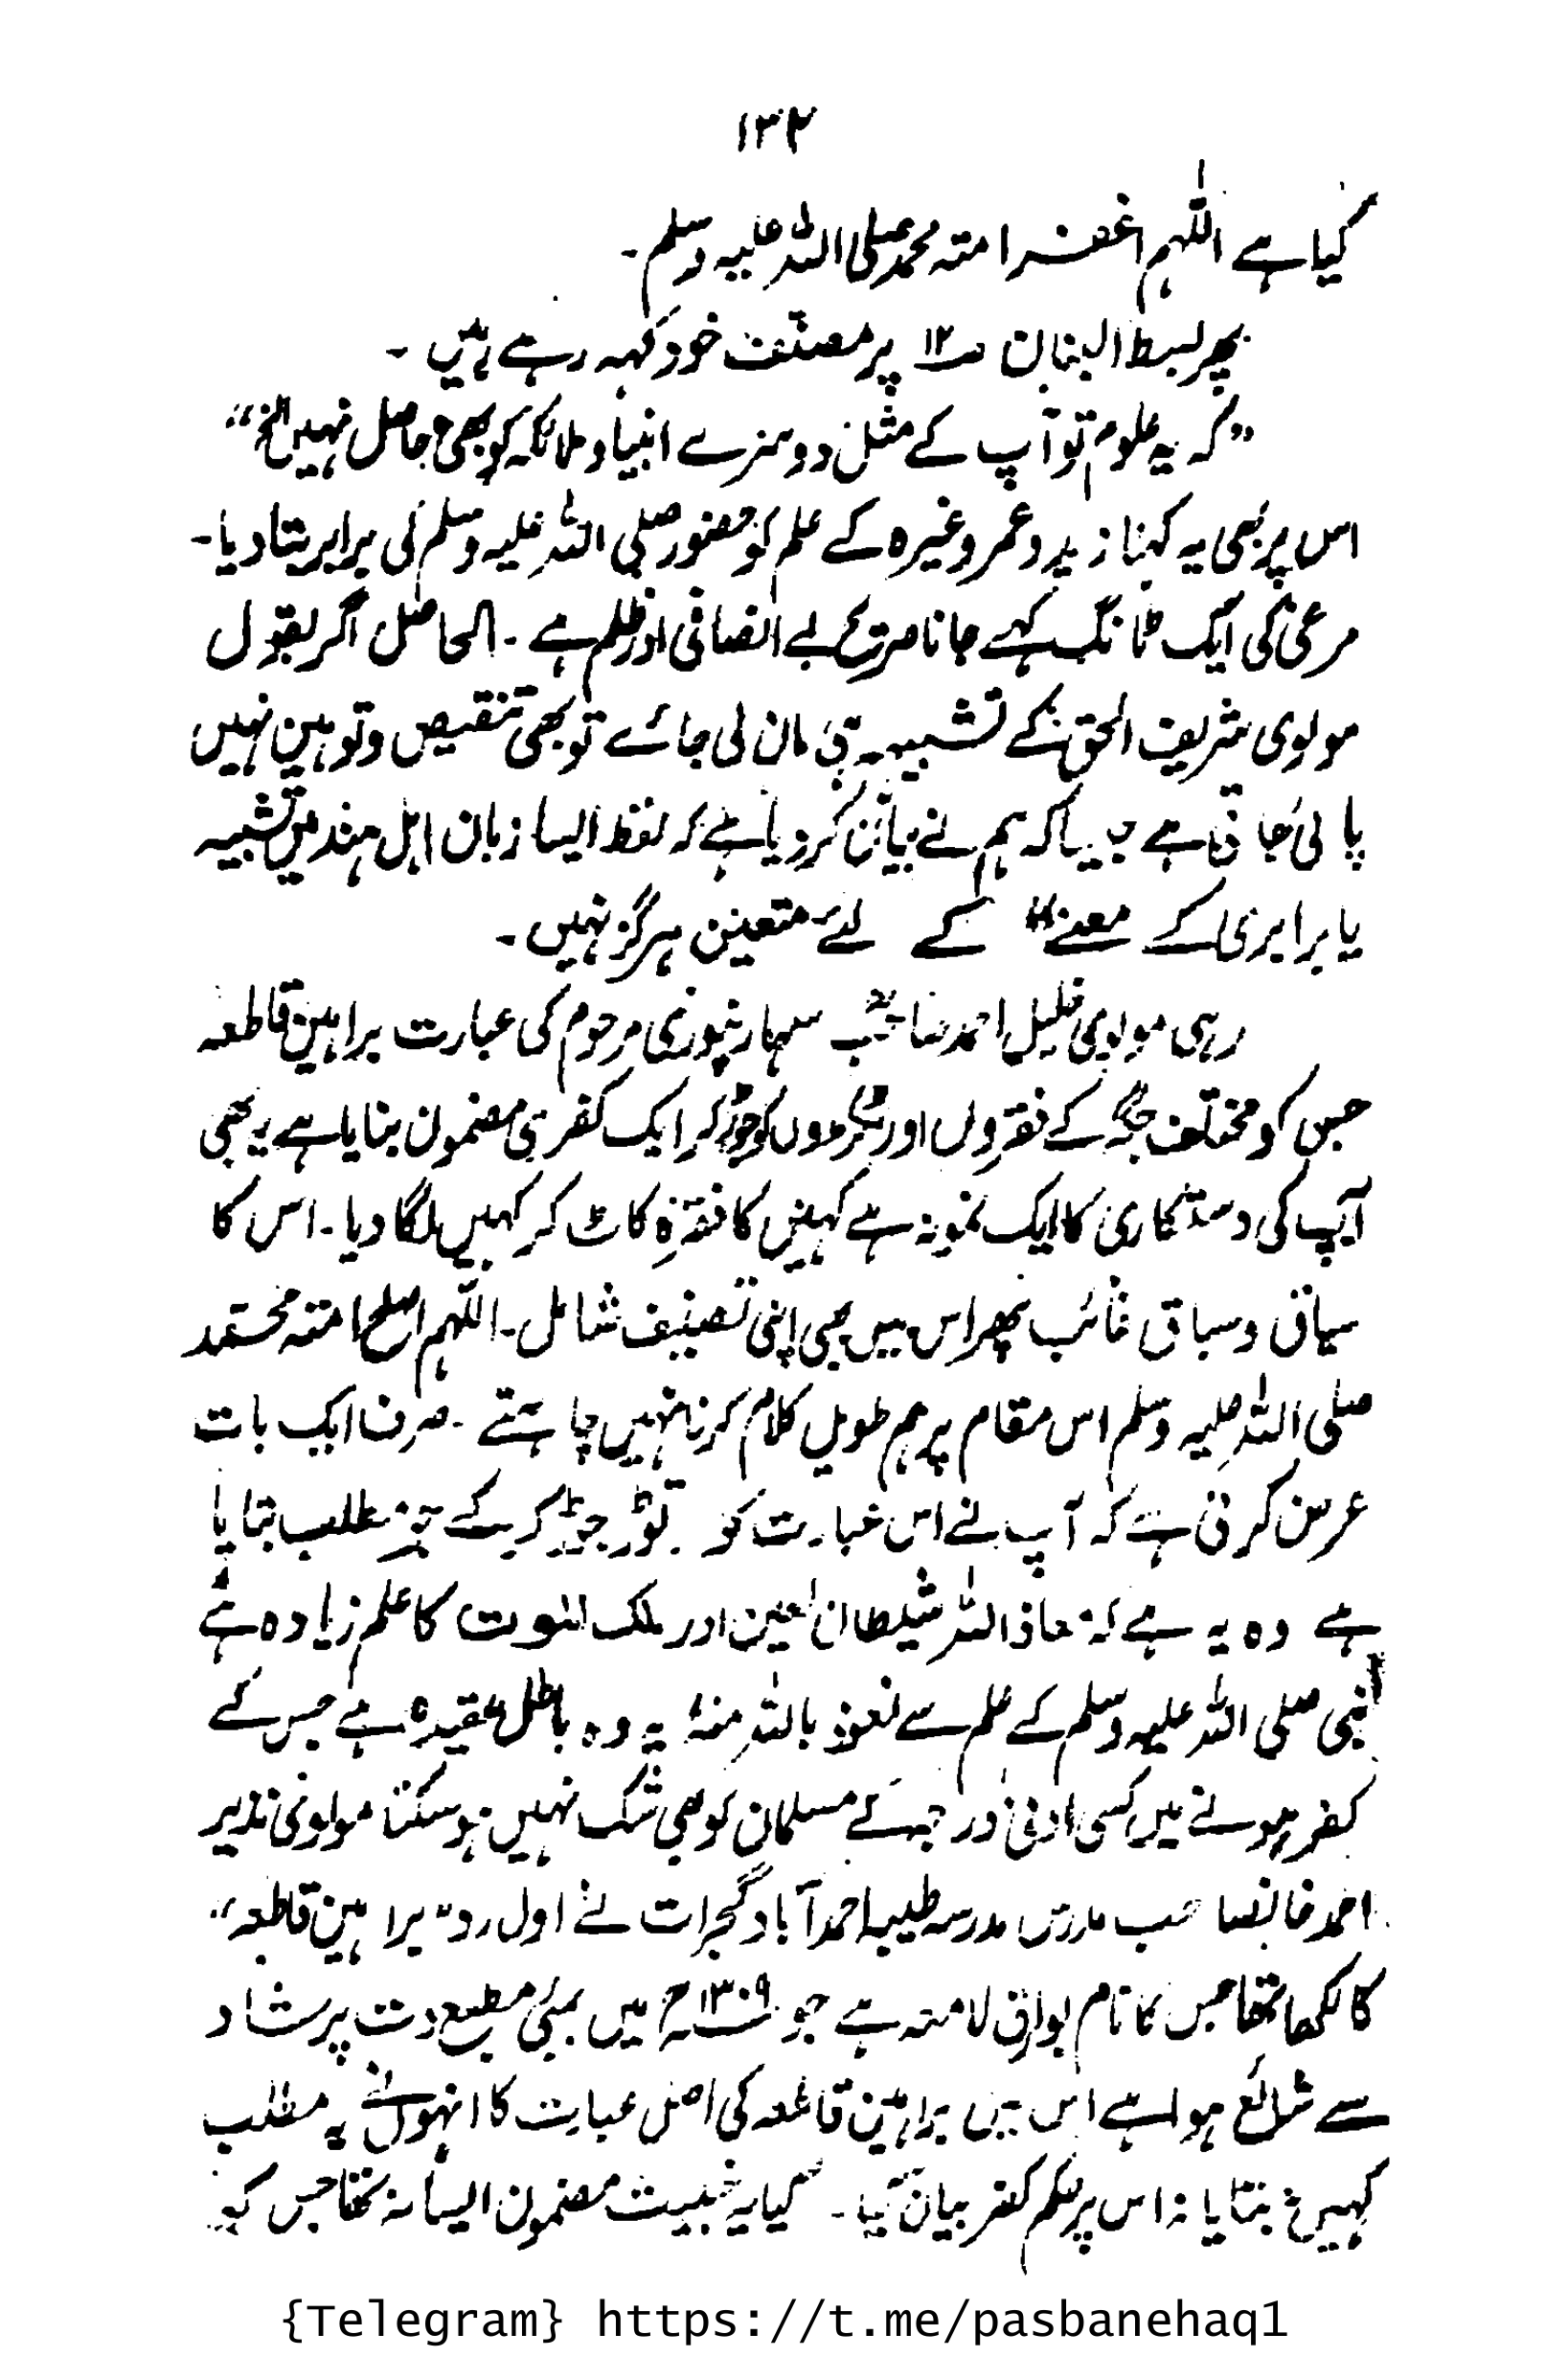 ۱۳۲
کیا ہے اللّٰہم اغفر امتہ محمد صلی اللہ علیہ وسلم۔
پھر بسط البنان ص۱۲ پر مصنف خود کہہ رہے ہیں ۔
”کہ یہ علوم تو آپ کے مثل دوسرے انبیاء و ملائکہ کو بھی حاصل نہیں الخ“
اس پر بھی یہ کہنا زید و عمر وغیرہ کے علم کو حضور صلی اللہ علیہ وسلم کی برابر بتا دیا۔
مرغی کی ایک ٹانگ کہے جانا صریح بے انصافی اور ظلم ہے ۔ الحاصل اگر بقول
مولوی شریف الحق کے تشبیہ ہی مان لی جائے تو بھی تنقیص و توہین نہیں
پائی جاتی ہے جیسا کہ ہم نے بیان کر دیا ہے کہ لفظ ایسا زبان اہل ہند میں تشبیہ
یا برابری کے معنے“ کے لئے متعین ہرگز نہیں ۔
رہی مولوی خلیل احمد صاحبؒ سہارنپوری مرحوم کی عبارت براہین قاطعہ
جس کو مختلف جگہ کے فقروں اور ٹکڑوں کو جوڑ کر ایک کفری مضمون بنایا ہے یہ بھی
آپ کی دستکاری کا ایک نمونہ ہے کہیں کا فقرہ کاٹ کر کہیں لگا دیا ۔ اس کا
سیاق و سباق غائب پھر اس میں بھی اپنی تصنیف شامل ۔ اللّٰہم اصلح امتہ محمد
صلی اللہ علیہ وسلم اس مقام پر ہم طویل کلام کرنا نہیں چاہتے ۔ صرف ایک بات
عرض کرنی ہے کہ آپ نے اس عبارت کو توڑ جوڑ کر کے جو مطلب بتایا
ہے وہ یہ ہے کہ معاذ اللہ شیطان لعین اور ملک الموت کا علم زیادہ ہے
نبی صلی اللہ علیہ وسلم کے علم سے نعوذ باللہ منہ یہ وہ باطل عقیدہ ہے جس کے
کفر ہونے میں کسی ادنیٰ درجہ کے مسلمان کو بھی شک نہیں ہو سکتا مولوی نذیر
احمد خانصاحب مدرس مدرسہ طیبہ احمد آباد گجرات نے اول رد ”براہین قاطعہ“
کا لکھا تھا جس کا نام بوارق لامعہ ہے جو ۱۳۰۹ھ میں بمبئی مطبع دت پرشاد
سے شائع ہوا ہے اس میں براہین قاطعہ کی اصل عبارت کا انہوں نے یہ مطلب
کہیں نہ بتایا نہ اس پر حکم کفر بیان کیا ۔ کیا یہ خبیث مضمون ایسا نہ تھا جس کو
{Telegram} https://t.me/pasbanehaq1